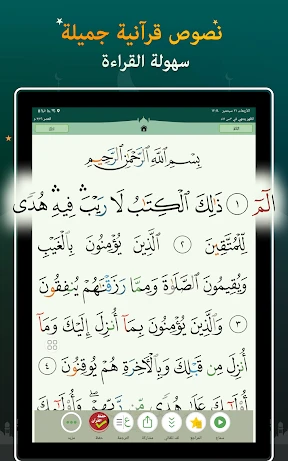 نصوص قرآنية جميلة
سهولة القراءة
بِسْمِ اللَّهِ الرَّحْمَٰنِ الرَّحِيمِ
الٓمٓ ۝١ ذَٰلِكَ ٱلْكِتَٰبُ لَا رَيْبَ ۛ فِيهِ ۛ هُدًى
لِّلْمُتَّقِينَ ۝٢ ٱلَّذِينَ يُؤْمِنُونَ بِٱلْغَيْبِ
وَيُقِيمُونَ ٱلصَّلَوٰةَ وَمِمَّا رَزَقْنَٰهُمْ يُنفِقُونَ
۝٣ وَٱلَّذِينَ يُؤْمِنُونَ بِمَآ أُنزِلَ إِلَيْكَ وَمَآ
أُنزِلَ مِن قَبْلِكَ وَبِٱلْءَاخِرَةِ هُمْ يُوقِنُونَ ۝٤
أُو۟لَٰٓئِكَ عَلَىٰ هُدًى مِّن رَّبِّهِمْ ۖ وَأُو۟لَٰٓئِكَ